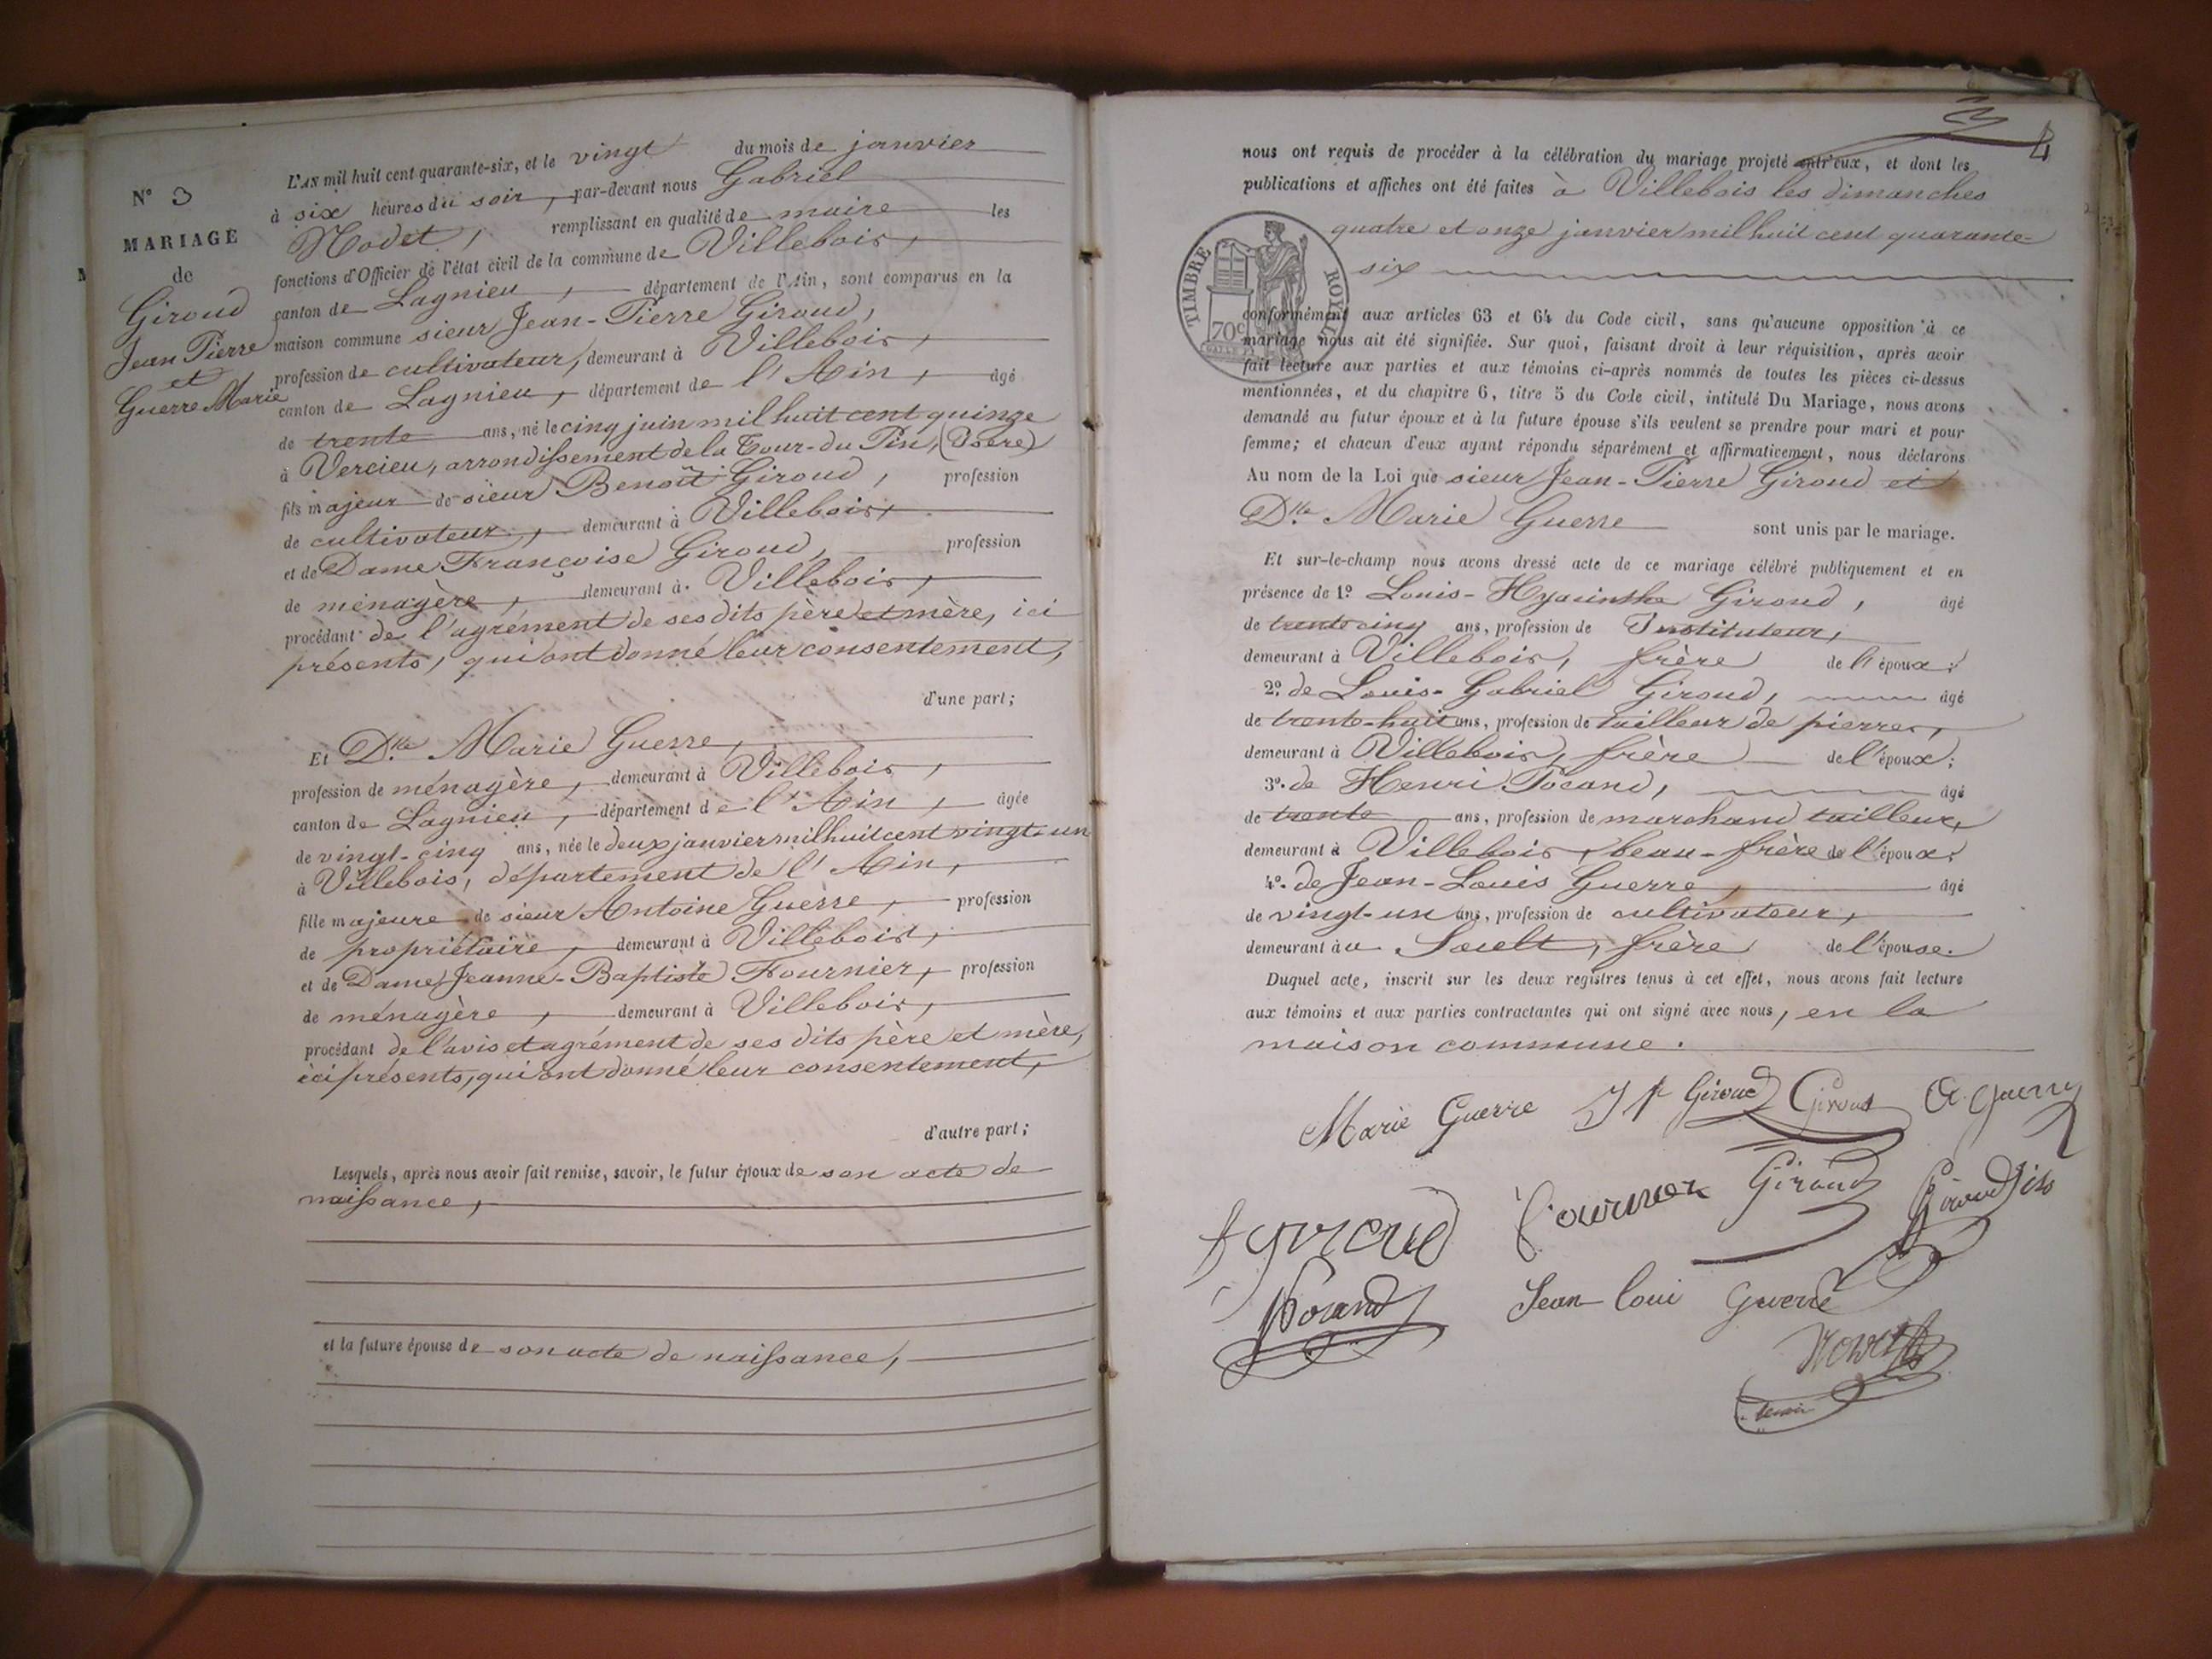 N° 3
MARIAGE
de
Giroud
Jean Pierre
et
Guerre Marie
L'AN mil huit cent quarante-six, et le vingt du mois de janvier
à six heures du soir, par-devant nous Gabriel
Nodet, remplissant en qualité de maire les
fonctions d'Officier de l'état civil de la commune de Villebois,
canton de Lagnieu, département de l'Ain, sont comparus en la
maison commune sieur Jean-Pierre Giroud,
profession de cultivateur, demeurant à Villebois,
canton de Lagnieu, département de l'Ain, âgé
de trente ans, né le cinq juin mil huit cent quinze
à Vercieu, arrondissement de la Tour-du-Pin, (Isère)
fils majeur de sieur Benoît Giroud, profession
de cultivateur, demeurant à Villebois,
et de Dame Françoise Giroud, profession
de ménagère, demeurant à Villebois,
procédant de l'agrément de ses dits père et mère, ici
présents, qui ont donné leur consentement,
d'une part;
Et Dlle Marie Guerre,
profession de ménagère, demeurant à Villebois,
canton de Lagnieu, département de l'Ain, âgée
de vingt-cinq ans, née le deux janvier mil huit cent vingt-un
à Villebois, département de l'Ain,
fille majeure de sieur Antoine Guerre, profession
de propriétaire, demeurant à Villebois,
et de Dame Jeanne-Baptiste Fournier, profession
de ménagère, demeurant à Villebois,
procédant de l'avis et agrément de ses dits père et mère,
ici présents, qui ont donné leur consentement,
d'autre part;
Lesquels, après nous avoir fait remise, savoir, le futur époux de son acte de
naissance,
et la future épouse de son acte de naissance,
4
nous ont requis de procéder à la célébration du mariage projeté entr'eux, et dont les
publications et affiches ont été faites à Villebois les dimanches
quatre et onze janvier mil huit cent quarante-
six
TIMBRE ROYAL
70c
conformément aux articles 63 et 64 du Code civil, sans qu'aucune opposition à ce
mariage nous ait été signifiée. Sur quoi, faisant droit à leur réquisition, après avoir
fait lecture aux parties et aux témoins ci-après nommés de toutes les pièces ci-dessus
mentionnées, et du chapitre 6, titre 5 du Code civil, intitulé Du Mariage, nous avons
demandé au futur époux et à la future épouse s'ils veulent se prendre pour mari et pour
femme; et chacun d'eux ayant répondu séparément et affirmativement, nous déclarons
Au nom de la Loi que sieur Jean-Pierre Giroud et
Dlle Marie Guerre sont unis par le mariage.
Et sur-le-champ nous avons dressé acte de ce mariage célébré publiquement et en
présence de 1° Louis-Hyacinthe Giroud, âgé
de trente cinq ans, profession de Instituteur,
demeurant à Villebois, frère de l'époux;
2° de Louis-Gabriel Giroud, âgé
de trente-huit ans, profession de tailleur de pierres,
demeurant à Villebois, frère de l'époux;
3° de Henri Pocand, âgé
de trente ans, profession de marchand tailleur,
demeurant à Villebois, beau-frère de l'époux;
4° de Jean-Louis Guerre, âgé
de vingt-un ans, profession de cultivateur,
demeurant au Sault, frère de l'épouse.
Duquel acte, inscrit sur les deux registres tenus à cet effet, nous avons fait lecture
aux témoins et aux parties contractantes qui ont signé avec nous, en la
maison commune.
Marie Guerre J P Giroud Giroud
fournier Giroud Giroud
Jean loui Guerre